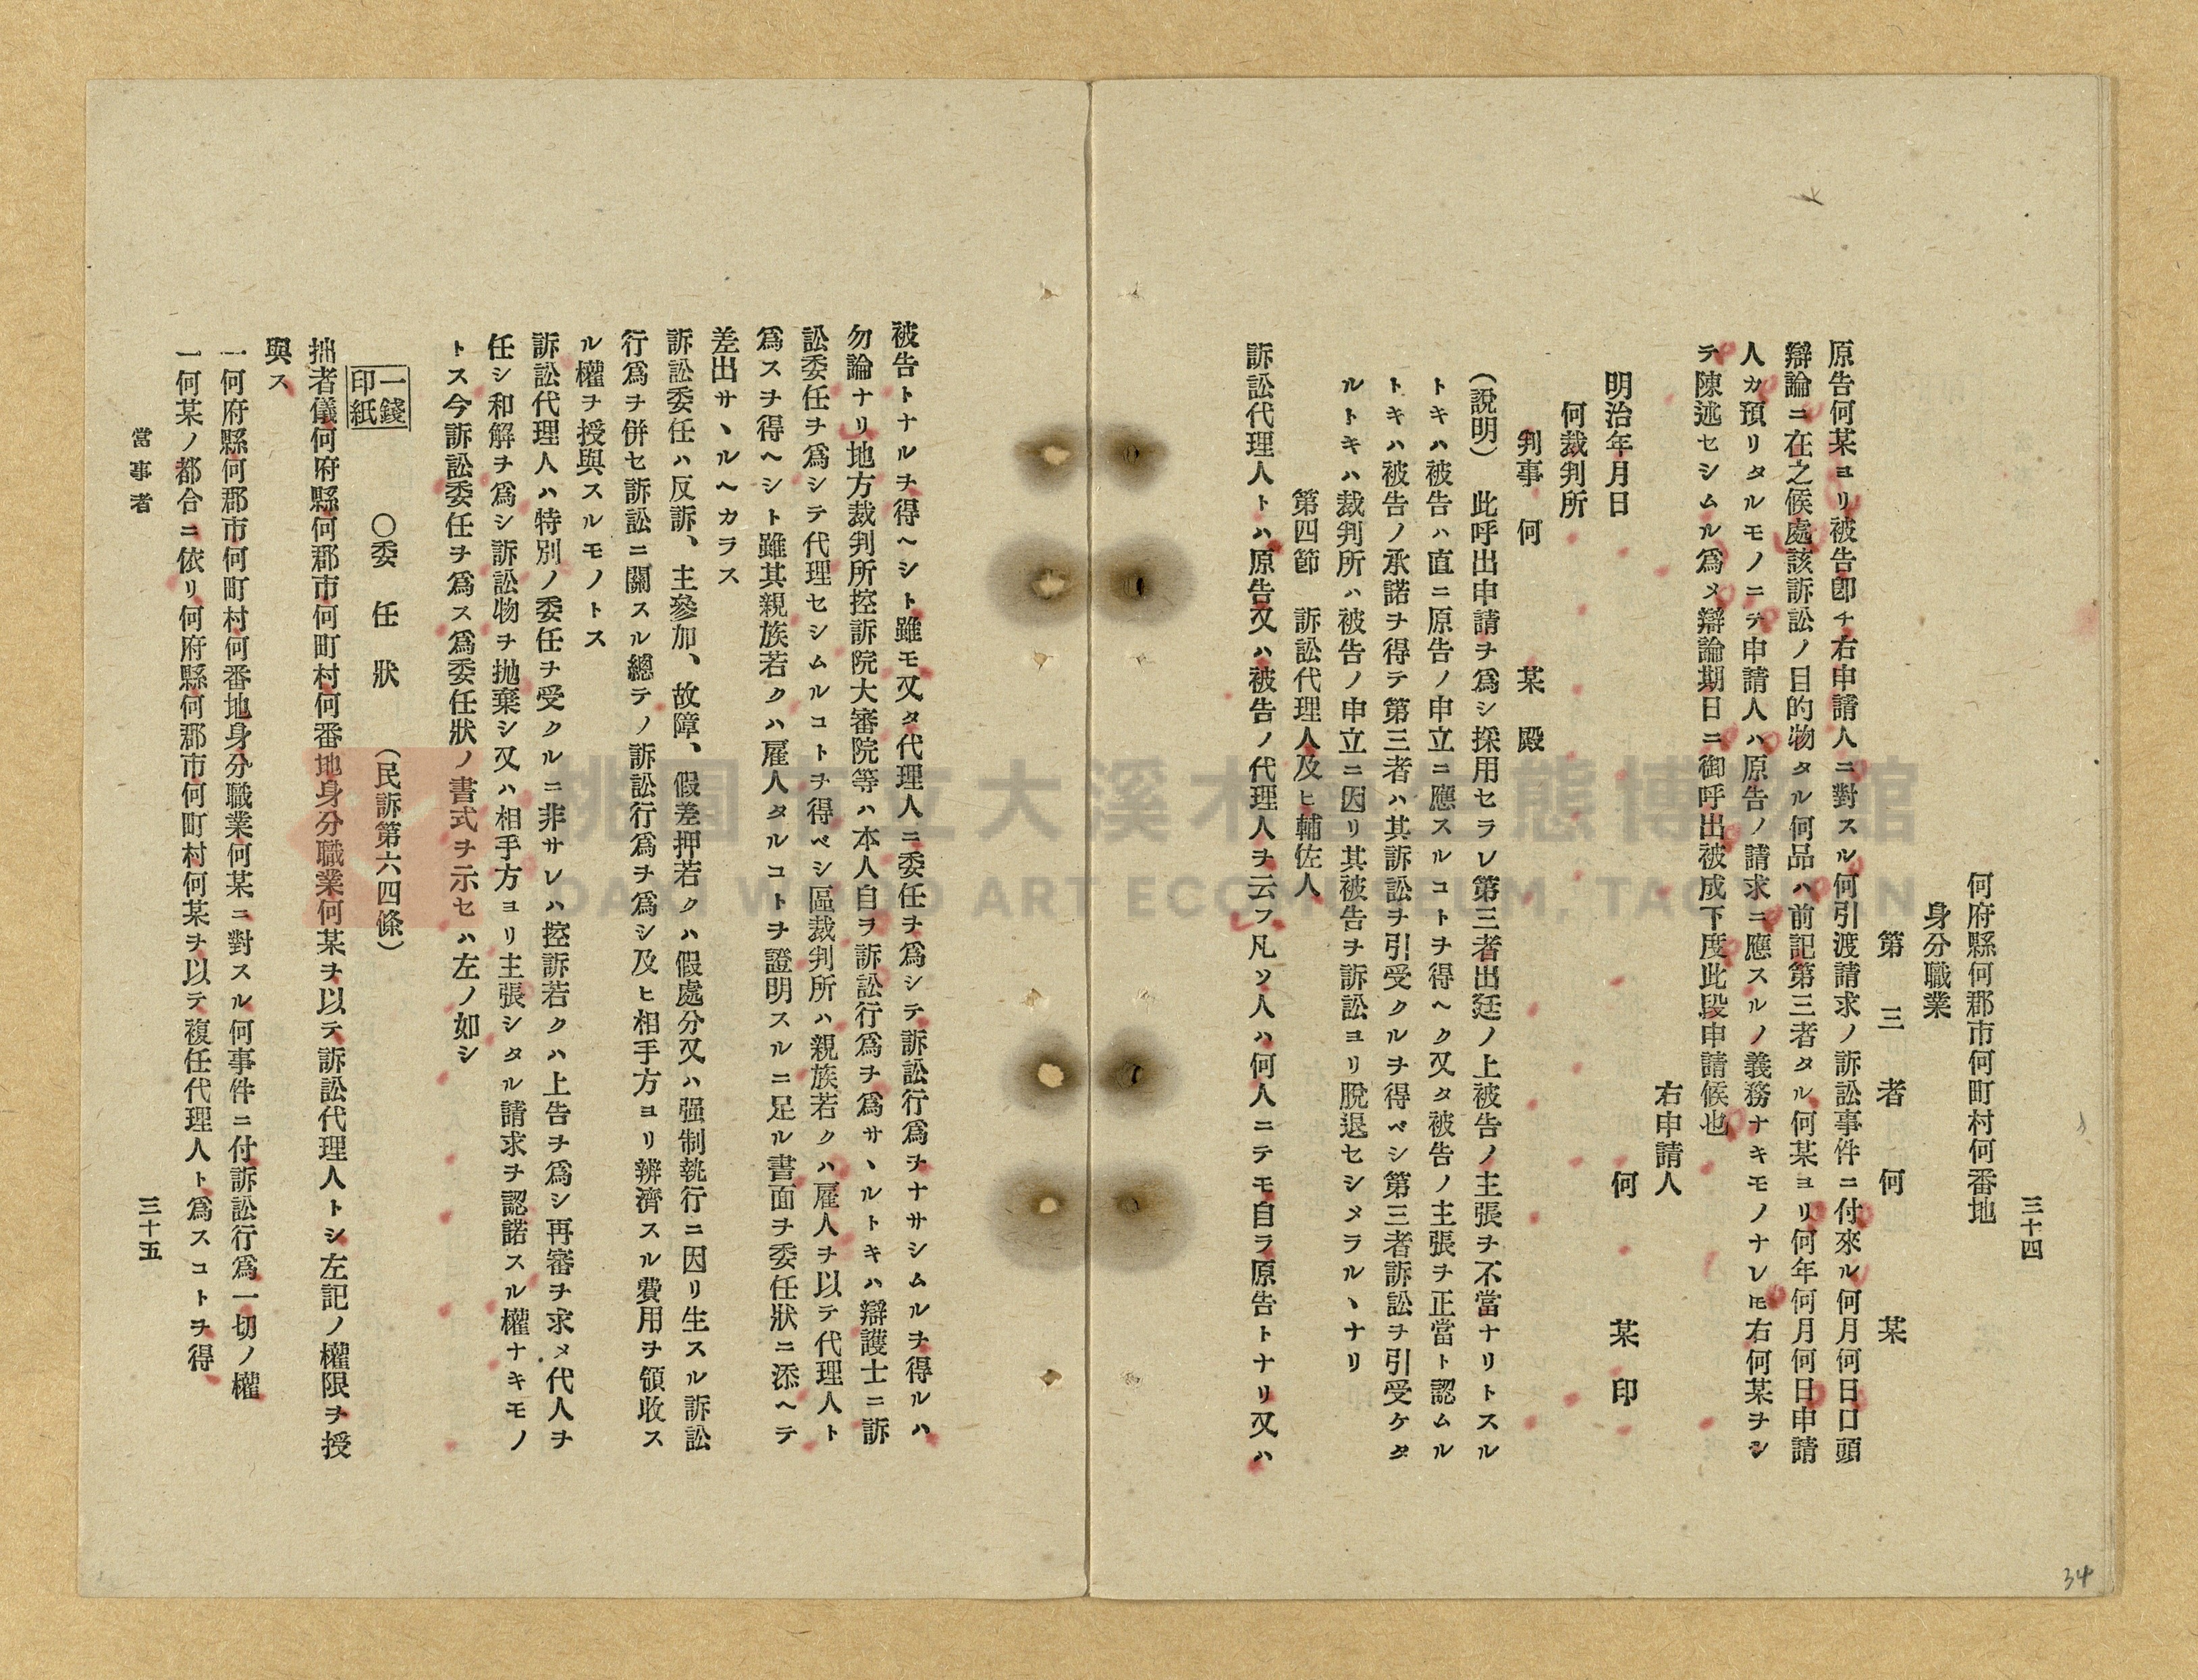 三十四
何府縣何郡市何町村何番地
身分職業
第三者 何某
原告何某ヨリ被告卽チ右申請人ニ對スル何引渡請求ノ訴訟事件ニ付來ル何月何日口頭
辯論ニ在之候處該訴訟ノ目的物タル何品ハ前記第三者タル何某ヨリ何年何月何日申請
人カ預リタルモノニテ申請人ハ原告ノ請求ニ應スルノ義務ナキモノナレ𪜈右何某ヲシ
テ陳述セシムル爲メ辯論期日ニ御呼出被成下度此段申請候也
右申請人
明治年月日 何某印
何裁判所
判事 何某殿
(說明) 此呼出申請ヲ爲シ採用セラレ第三者出廷ノ上被告ノ主張ヲ不當ナリトスル
トキハ被告ハ直ニ原告ノ申立ニ應スルコトヲ得ヘク又タ被告ノ主張ヲ正當ト認ムル
トキハ被告ノ承諾ヲ得テ第三者ハ其訴訟ヲ引受クルヲ得ベシ第三者訴訟ヲ引受ケタ
ルトキハ裁判所ハ被告ノ申立ニ因リ其被告ヲ訴訟ヨリ脫退セシメラルヽナリ
第四節 訴訟代理人及ヒ輔佐人
訴訟代理人トハ原告又ハ被告ノ代理人ヲ云フ凡ソ人ハ何人ニテモ自ラ原告トナリ又ハ
被告トナルヲ得ヘシト雖モ又タ代理人ニ委任ヲ爲シテ訴訟行爲ヲナサシムルヲ得ルハ
勿論ナリ地方裁判所控訴院大審院等ハ本人自ヲ訴訟行爲ヲ爲サヽルトキハ辯護士ニ訴
訟委任ヲ爲シテ代理セシムルコトヲ得ベシ區裁判所ハ親族若クハ雇人ヲ以テ代理人ト
爲スヲ得ヘシト雖其親族若クハ雇人タルコトヲ證明スルニ足ル書面ヲ委任狀ニ添ヘテ
差出サヽルヘカラス
訴訟委任ハ反訴、主參加、故障、假差押若クハ假處分又ハ强制執行ニ因リ生スル訴訟
行爲ヲ併セ訴訟ニ關スル總テノ訴訟行爲ヲ爲シ及ヒ相手方ヨリ辨濟スル費用ヲ領收ス
ル權ヲ授與スルモノトス
訴訟代理人ハ特別ノ委任ヲ受クルニ非サレハ控訴若クハ上告ヲ爲シ再審ヲ求メ代人ヲ
任シ和解ヲ爲シ訴訟物ヲ抛棄シ又ハ相手方ヨリ主張シタル請求ヲ認諾スル權ナキモノ
トス今訴訟委任ヲ爲ス爲委任狀ノ書式ヲ示セハ左ノ如シ
一錢印紙 ○委任狀 (民訴第六四條)
拙者儀何府縣何郡市何町村何番地身分職業何某ヲ以テ訴訟代理人トシ左記ノ權限ヲ授
與ス
一何府縣何郡市何町村何番地身分職業何某ニ對スル何事件ニ付訴訟行爲一切ノ權
一何某ノ都合ニ依リ何府縣何郡市何町村何某ヲ以テ複任代理人ト爲スコトヲ得
當事者 三十五
34
桃園市立大溪木藝生態博物館
DAXI WOOD ART ECOMUSEUM, TAOYUAN